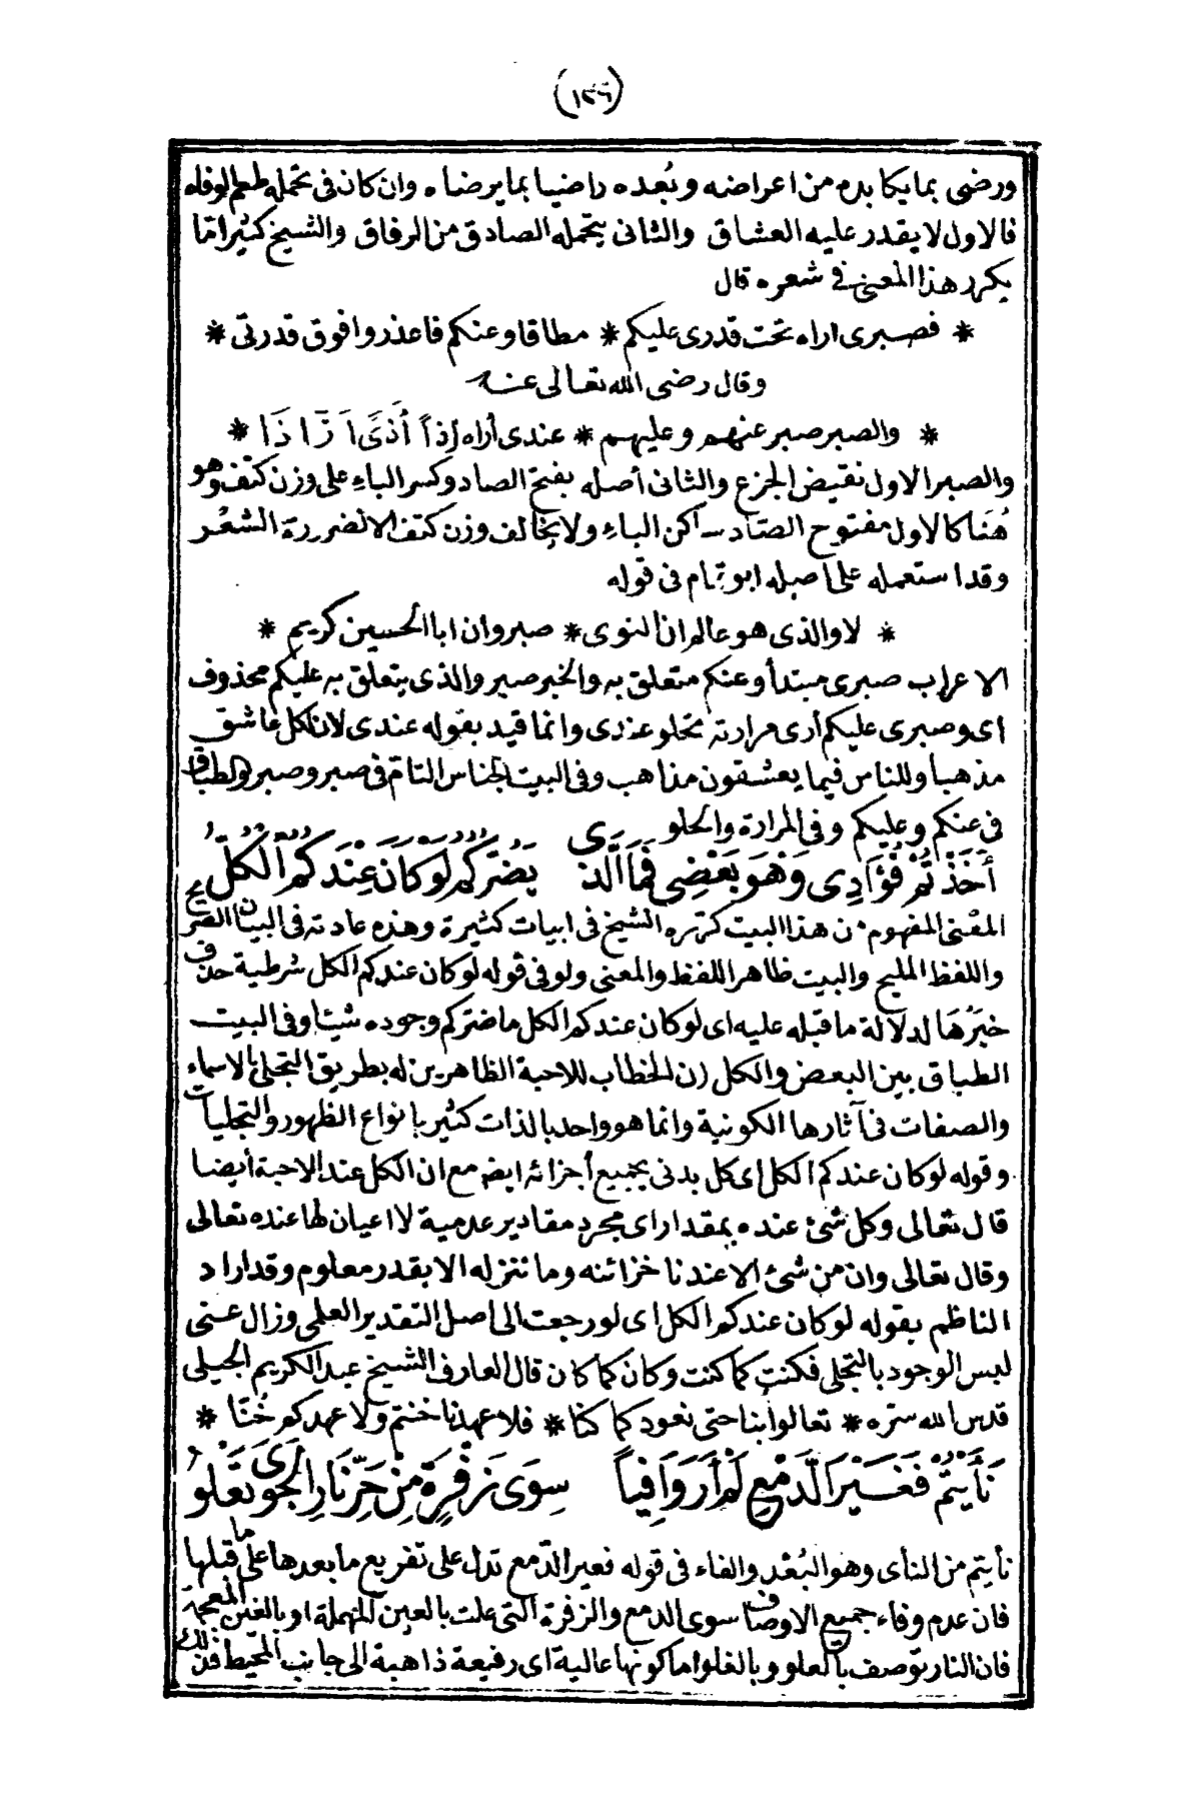 (١٢٦)
ورضى بما يكابده من اعراضه وبُعده راضيا بما يرضاه وان كان فى تحمله طعم الوفاه
فالاول لا يقدر عليه العشاق والثانى يتحمله الصادق من الرفاق والشيخ كثيرا مّا
يكرر هذا المعنى فى شعره قال
* فصبرى اراه تحت قدرى عليكم * مطاقا وعنكم فاعذروا فوق قدرتى *
وقال رضى الله تعالى عنه
* والصبر صبر عنهم وعليهم * عندى أراه إذاً أذىً
والصبر الاول نقيض الجزع والثانى أصله بفتح الصاد وكسر الباء على وزن كتف وهو
هُنَا كالاول مفتوح الصّاد ساكن الباء ولا يخالف وزن كتف الا لضرورة الشعر
وقد استعمله على أصله ابو تمام فى قوله
* لا والذى هو عالم ان النوى * صبر وان ابا الحسين كريم *
الاعراب صبرى مبتدأ وعنكم متعلق به والخبر صبر والذى يتعلق به عليكم محذوف
اى وصبرى عليكم أرى مرارته تحلو عندى وانما قيد بقوله عندى لان لكل عاشق
مذهبا وللناس فيما يعشقون مذاهب وفى البيت الجناس التام فى صبر وصبر والطباق
فى عنكم وعليكم وفى المرارة والحلو
أَخَذْتُمْ فُؤَادِى وَهْوَ بَعْضِى فَمَا الَّذِى يَضُرُّكُمُ لَوْ كَانَ عِنْدَكُمُ الْكُلُّ
المعنى المفهوم من هذا البيت كرّره الشيخ فى ابيات كثيرة وهذه عادته فى البيان الصريح
واللفظ المليح والبيت ظاهر اللفظ والمعنى ولو فى قوله لو كان عندكم الكل شرطية حذف
خبَرُهَا لدلالة ما قبله عليه اى لو كان عندكم الكل ما ضركم وجوده شيئا وفى البيت
الطباق بين البعض والكل (ن) الخطاب للاحبة الظاهرين له بطريق التجلى بالاسماء
والصفات فى آثارها الكونية وانما هو واحد بالذات كثير بانواع الظهور والتجليات
وقوله لو كان عندكم الكل اى كل بدنى بجميع أجزائه ايضه مع ان الكل عند الاحبة أيضا
قال تعالى وكل شئ عنده بمقدار اى مجرد مقادير عدمية لا اعيان لها عنده تعالى
وقال تعالى وان من شئ الا عندنا خزائنه وما ننزله الا بقدر معلوم وقد اراد
الناظم بقوله لو كان عندكم الكل اى لو رجعت الى اصل التقدير العلمى وزال عنى
لبس الوجود بالتجلى فكنت كما كنت وكان كما كان قال العارف الشيخ عبد الكريم الجيلى
قدس الله سرّه * تعالوا بنا حتى نعود كما كنا * فلا عهدنا خنتم ولا عهدكم خُنّا *
نَأَيْتُمْ فَغَيْرَ الدَّمْعِ لَمْ أَرَ وَافِياً سِوَى زَفْرَةٍ مِنْ حَرِّ نَارِ الْجَوَى تَعْلُو
نأيتم من النأى وهو البُعْد والفاء فى قوله فغير الدّمع تدل على تفريع ما بعدها على ما قبلها
فان عدم وفاء جميع الاوصاف سوى الدمع والزفرة التى علت بالعين المهملة او بالغين المعجمة
فان النار توصف بالعلو وبالغلو اما كونها عالية اى رفيعة ذاهبة الى جانب المحيط فذلك